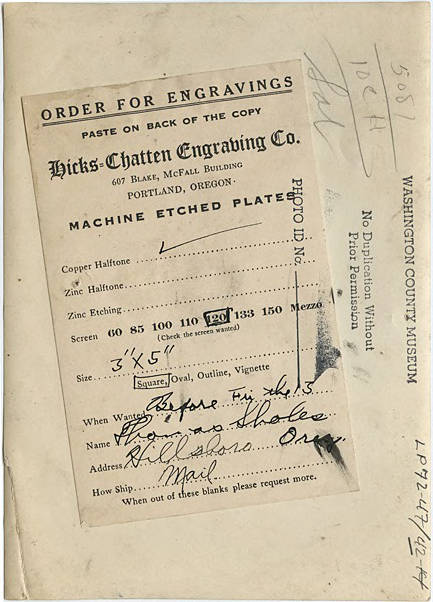 ORDER FOR ENGRAVINGS
PASTE ON BACK OF THE COPY
Hicks-Chatten Engraving Co.
607 BLAKE, MCFALL BUILDING
PORTLAND, OREGON.
MACHINE ETCHED PLATES
Copper Halftone
Zinc Halftone
Zinc Etching
Screen 60 85 100 110 120 133 150 Mezzo
(Check the screen wanted)
Size 3"x5"
Square, Oval, Outline, Vignette
When Wanted Before Fri the 13
Name Thomas Sholes
Address Hillsboro Oreg
How Ship Mail
When out of these blanks please request more.
PHOTO ID No.
No Duplication Without
Prior Permission
WASHINGTON COUNTY MUSEUM
5081